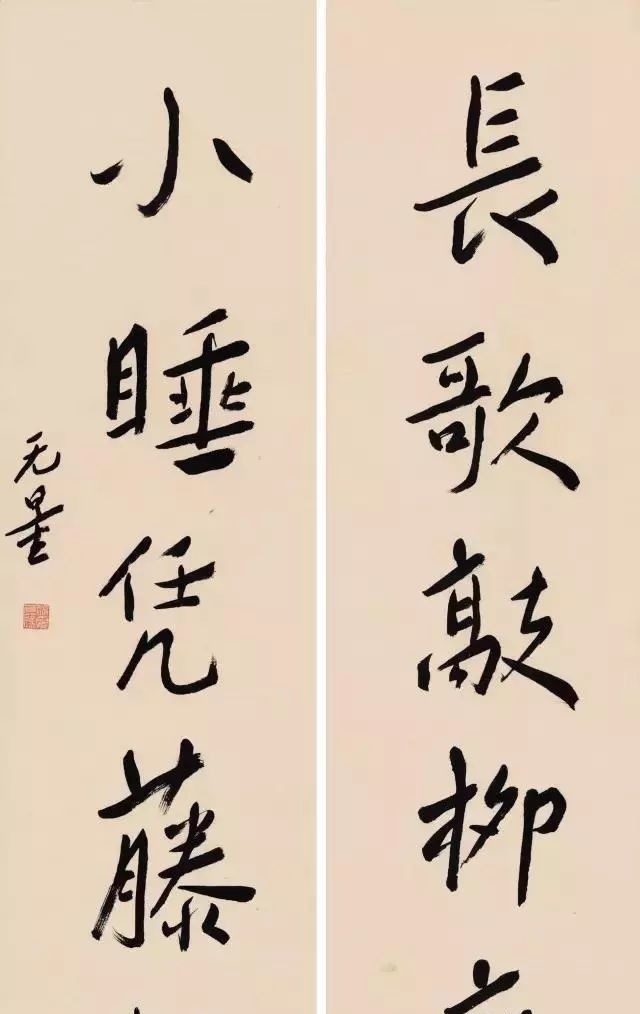 長歌敲柳
小睡凭藤
无量